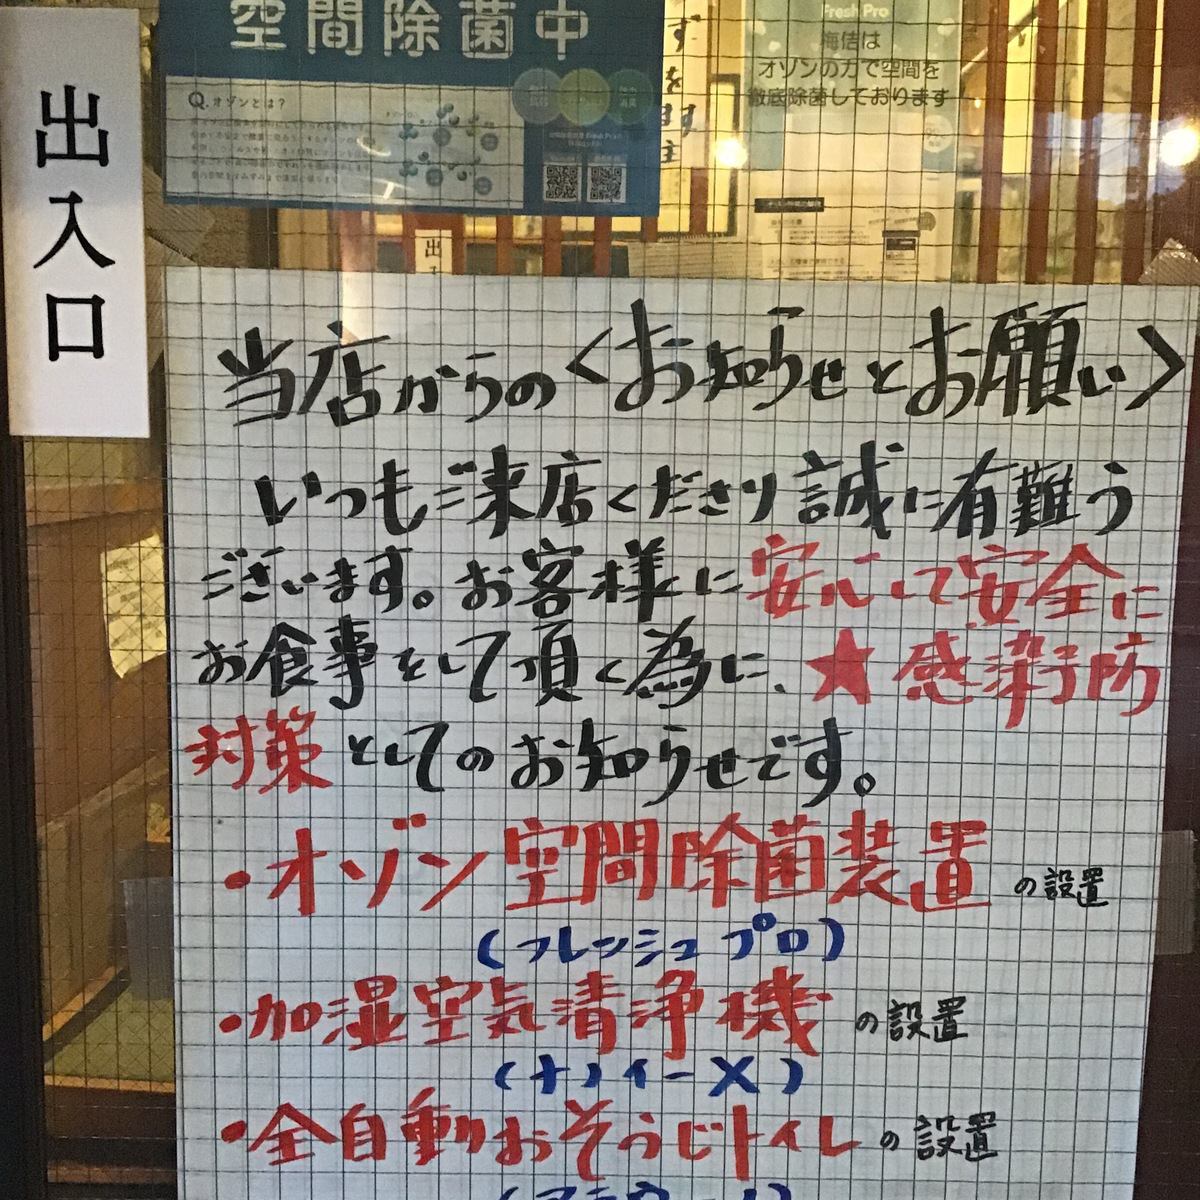 空間除菌中
Q.オゾンとは?
Fresh Pro
海佶は
オゾンの力で空間を
徹底除菌しております
出入口
当店からの<お知らせとお願い>
いつもご来店くださり誠に有難う
ございます。お客様に安心して安全に
お食事をして頂く為に、★感染予防
対策としてのお知らせです。
・オゾン空間除菌装置の設置
(フレッシュプロ)
・加湿空気清浄機の設置
(ナノイーX)
・全自動おそうじトイレの設置